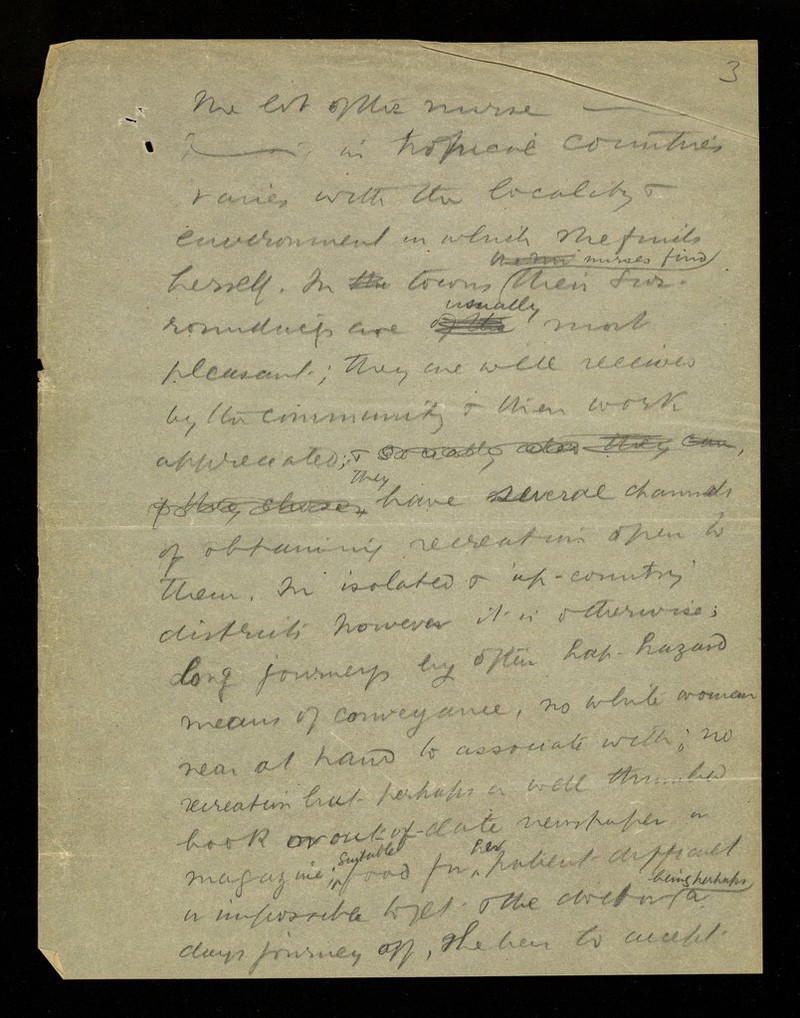 3
The lot of the nurse
in tropical countries
varies with the locality &
environment in which she finds
nurses find
herself. In the towns (their sur-
usually
roundings are of the most
pleasant; they are well received
by the community & their work
appreciated; & socially also they can,
They
if they choose, have several channels
of obtaining recreation open to
them. In isolated & up-country
districts however it is otherwise;
long journeys by often hap-hazard
means of conveyance, no white woman
near at hand to associate with; no
recreation but perhaps a well thumbed
book or out-of-date newspaper or
suitable her
magazine; food for patient difficult
being perhaps
or impossible to get & the doctor (a
days journey off, she has to accept